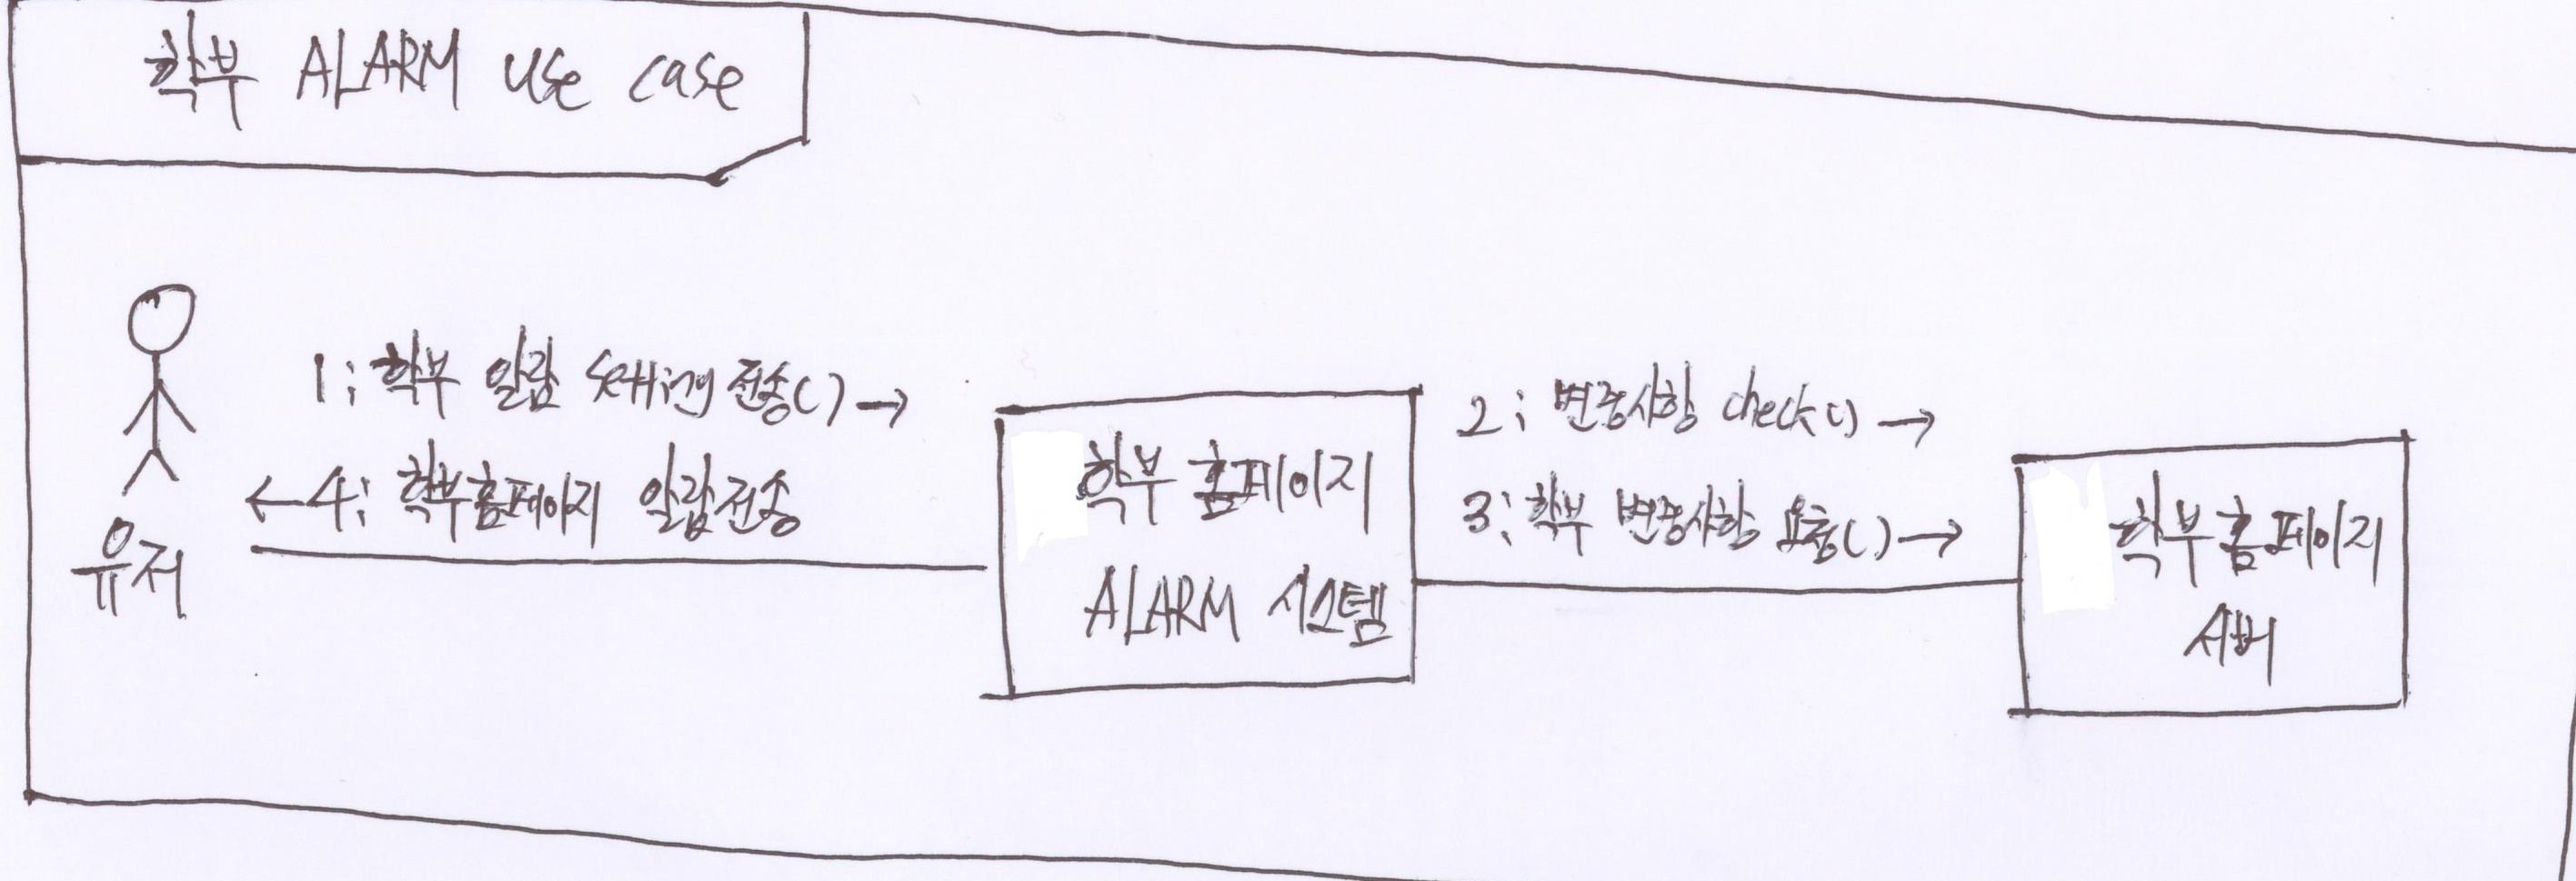 학부 ALARM use case
1: 학부 알람 setting 전송() →
← 4: 학부홈페이지 알람전송
유저
학부 홈페이지
ALARM 시스템
2: 변동사항 check() →
3: 학부 변동사항 요청() →
학부홈페이지
서버